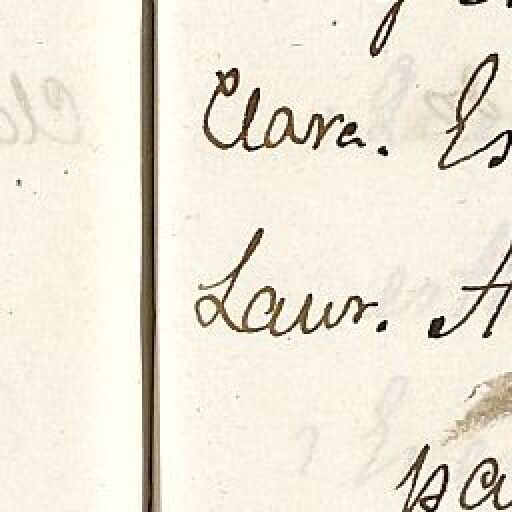 Clara. Es
Lawr. A
pa